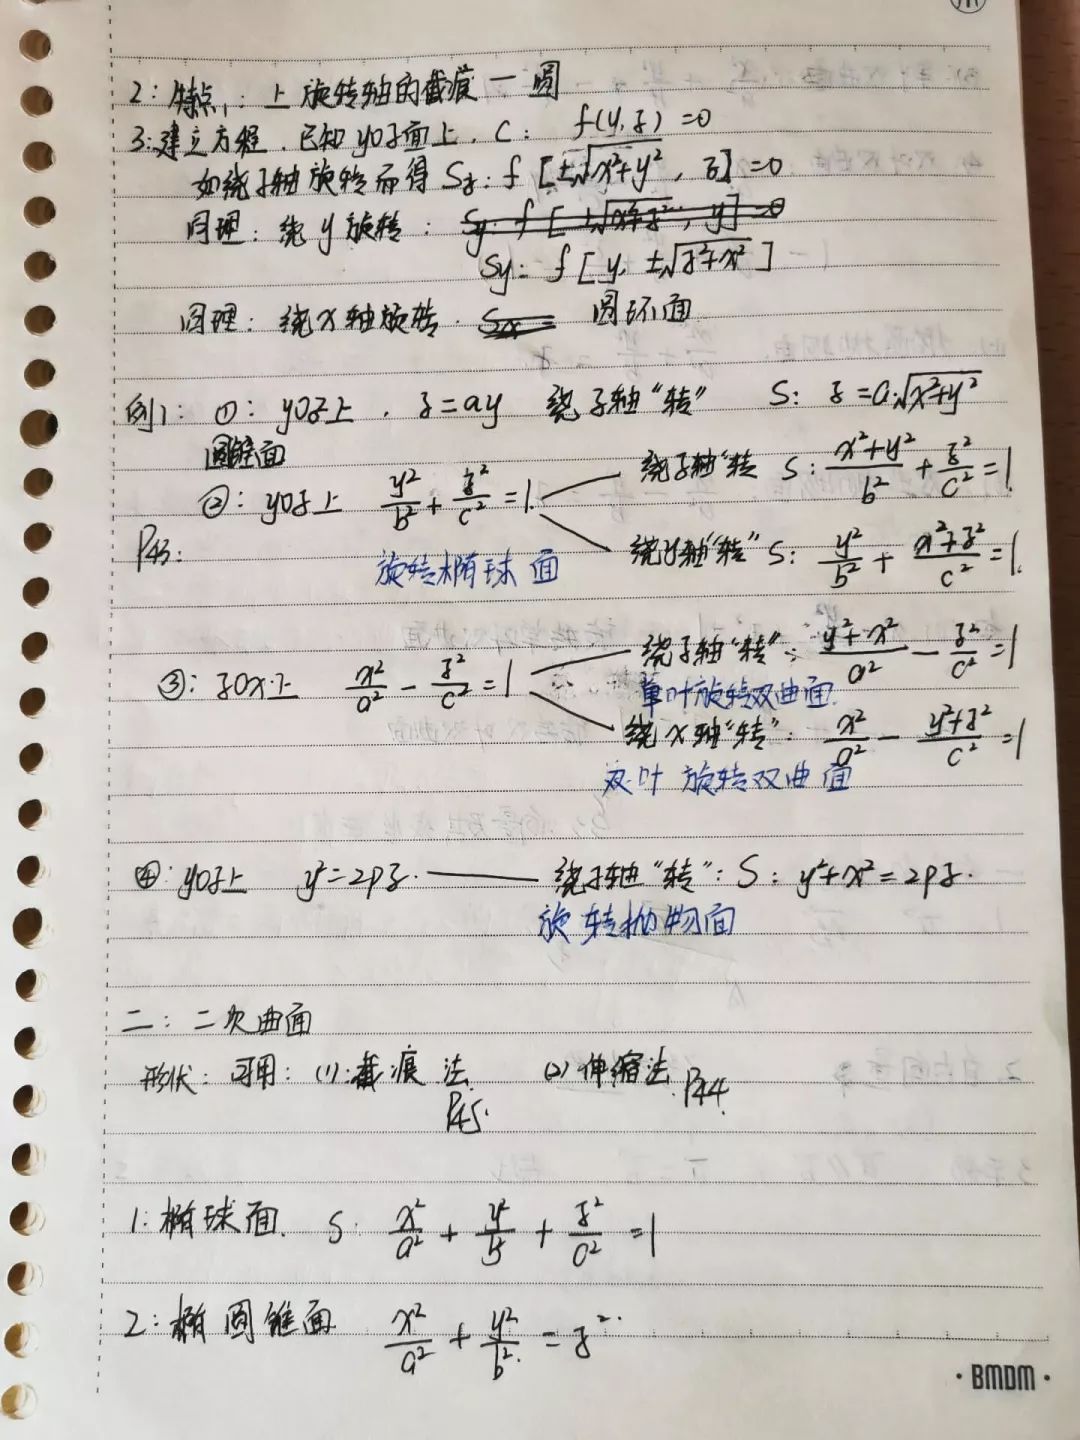 2: 特点: ⊥旋转轴的截痕 — 圆
3: 建立方程. 已知 yoz面上, C: f(y,z)=0
如绕z轴旋转而得 Sz: f[±√x²+y², z]=0
同理: 绕y旋转: Sy: f[±√x²+z², y]=0
Sy: f[y, ±√z²+x²]
同理: 绕x轴旋转. Sx = 圆环面
例1: ①: yoz上, z=ay 绕z轴"转" S: z=a√x²+y²
圆锥面
②: yoz上 y²/b² + z²/c² = 1. 绕z轴"转 S: x²+y²/b² + z²/c² = 1.
P43: 旋转椭球面 绕y轴"转" S: y²/b² + x²+z²/c² = 1.
③: zox上 x²/a² - z²/c² = 1 绕z轴"转": y²+x²/a² - z²/c² = 1
单叶旋转双曲面.
绕x轴"转": x²/a² - y²+z²/c² = 1
双叶旋转双曲面
④: yoz上 y²=2pz. — 绕z轴"转": S: y²+x²=2pz.
旋转抛物面
二: 二次曲面
形状: 可用: (1): 截痕法. P45. (2) 伸缩法. P44.
1: 椭球面. S: x²/a² + y²/b² + z²/c² = 1
2: 椭圆锥面 x²/a² + y²/b² = z².
· BMDM ·